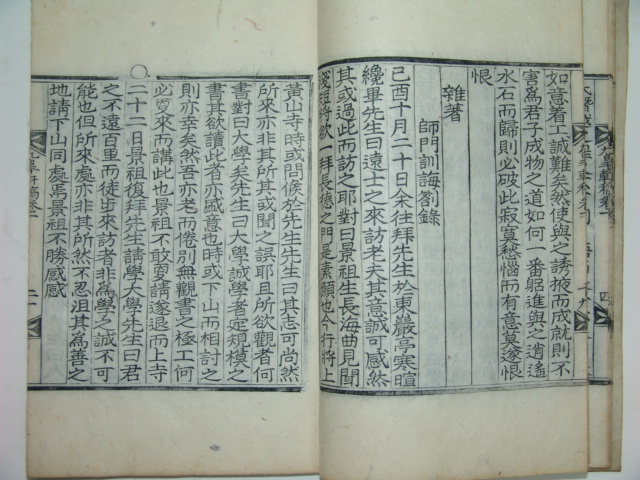 如意着工誠難矣然使與之誘掖而成就則不
害爲君子成物之道如何一番躬進與之逍遙
水石而歸則必破此寂寞愁惱而有意莫遂恨
恨
雜著
師門訓誨劄錄
己酉十月二十日余往拜先生於東巖亭寒暄
纔畢先生曰遠士之來訪老夫其意誠可感然
其或過此而訪之耶對曰景祖生長海曲見聞
淺短將欲一拜長德之門是素願也今行將上
黃山寺時或問候於先生先生曰其志可尚然
所來亦非其所其或聞之誤耶且所欲觀者何
書對曰大學矣先生曰大學誠學者定規模之
書其欲讀此者亦盛意也時或下山而相討之
則亦幸矣然吾亦老而倦別無觀書之極工何
必更來而講此也景祖不敢更請遂退而上寺
二十二日景祖復拜先生請學大學先生曰君
之不遠百里而徒步來訪者非爲學之誠不可
能也但所來處亦非其所然不忍沮其爲善之
地請下山同處焉景祖不勝感感